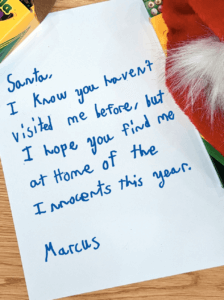 Santa,
I know you haven't
visited me before, but
I hope you find me
at Home of the
Innocents this year.
Marcus